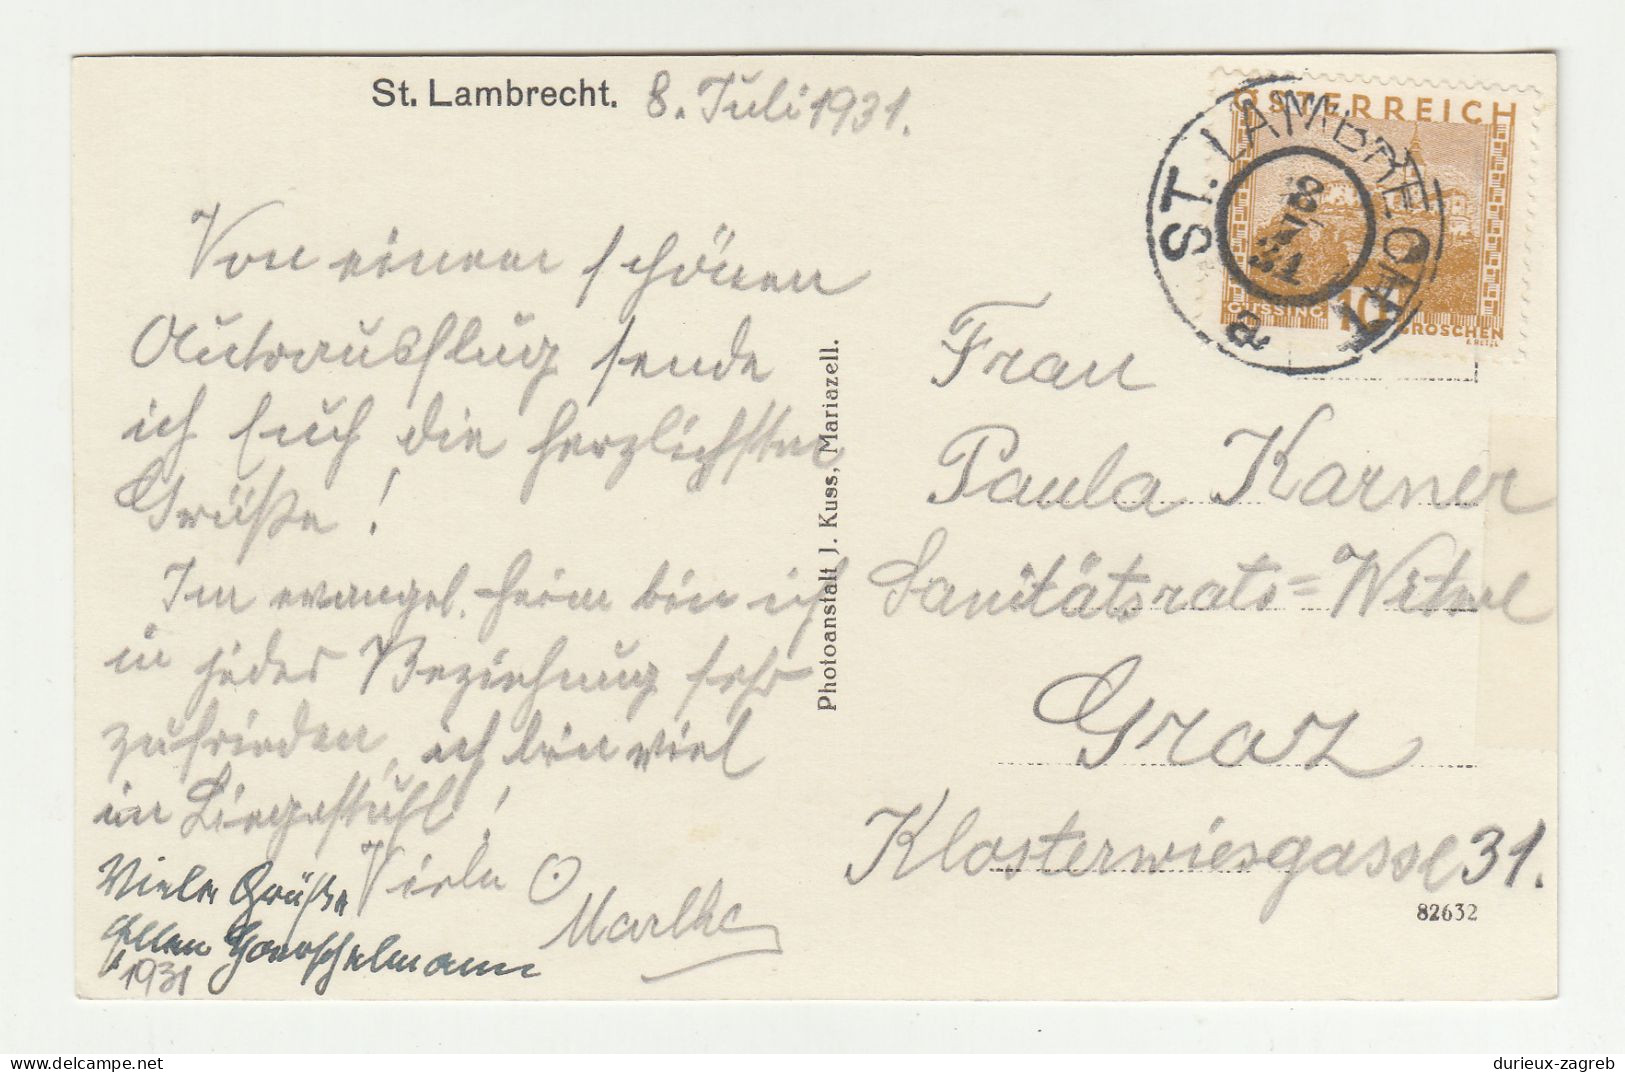 St. Lambrecht. 8. Juli 1931.
Von einem schönen
Autoausflug sende
ich Euch die herzlichsten
Grüße!
Im evangel. Heim bin ich
in jeder Beziehung sehr
zufrieden, ich bin viel
im Liegestuhl!
Viele
Marthe
Viele Grüße
Ellen Hoerschelmann
1931
Photoanstalt J. Kuss, Mariazell.
ÖSTERREICH
GÜSSING 10 GROSCHEN
ST. LAMBRECHT
8
31
a
Frau
Paula Karner
Sanitätsrats=Witwe
Graz
Klosterwiesgasse 31.
82632
delcampe.net
durieux-zagreb